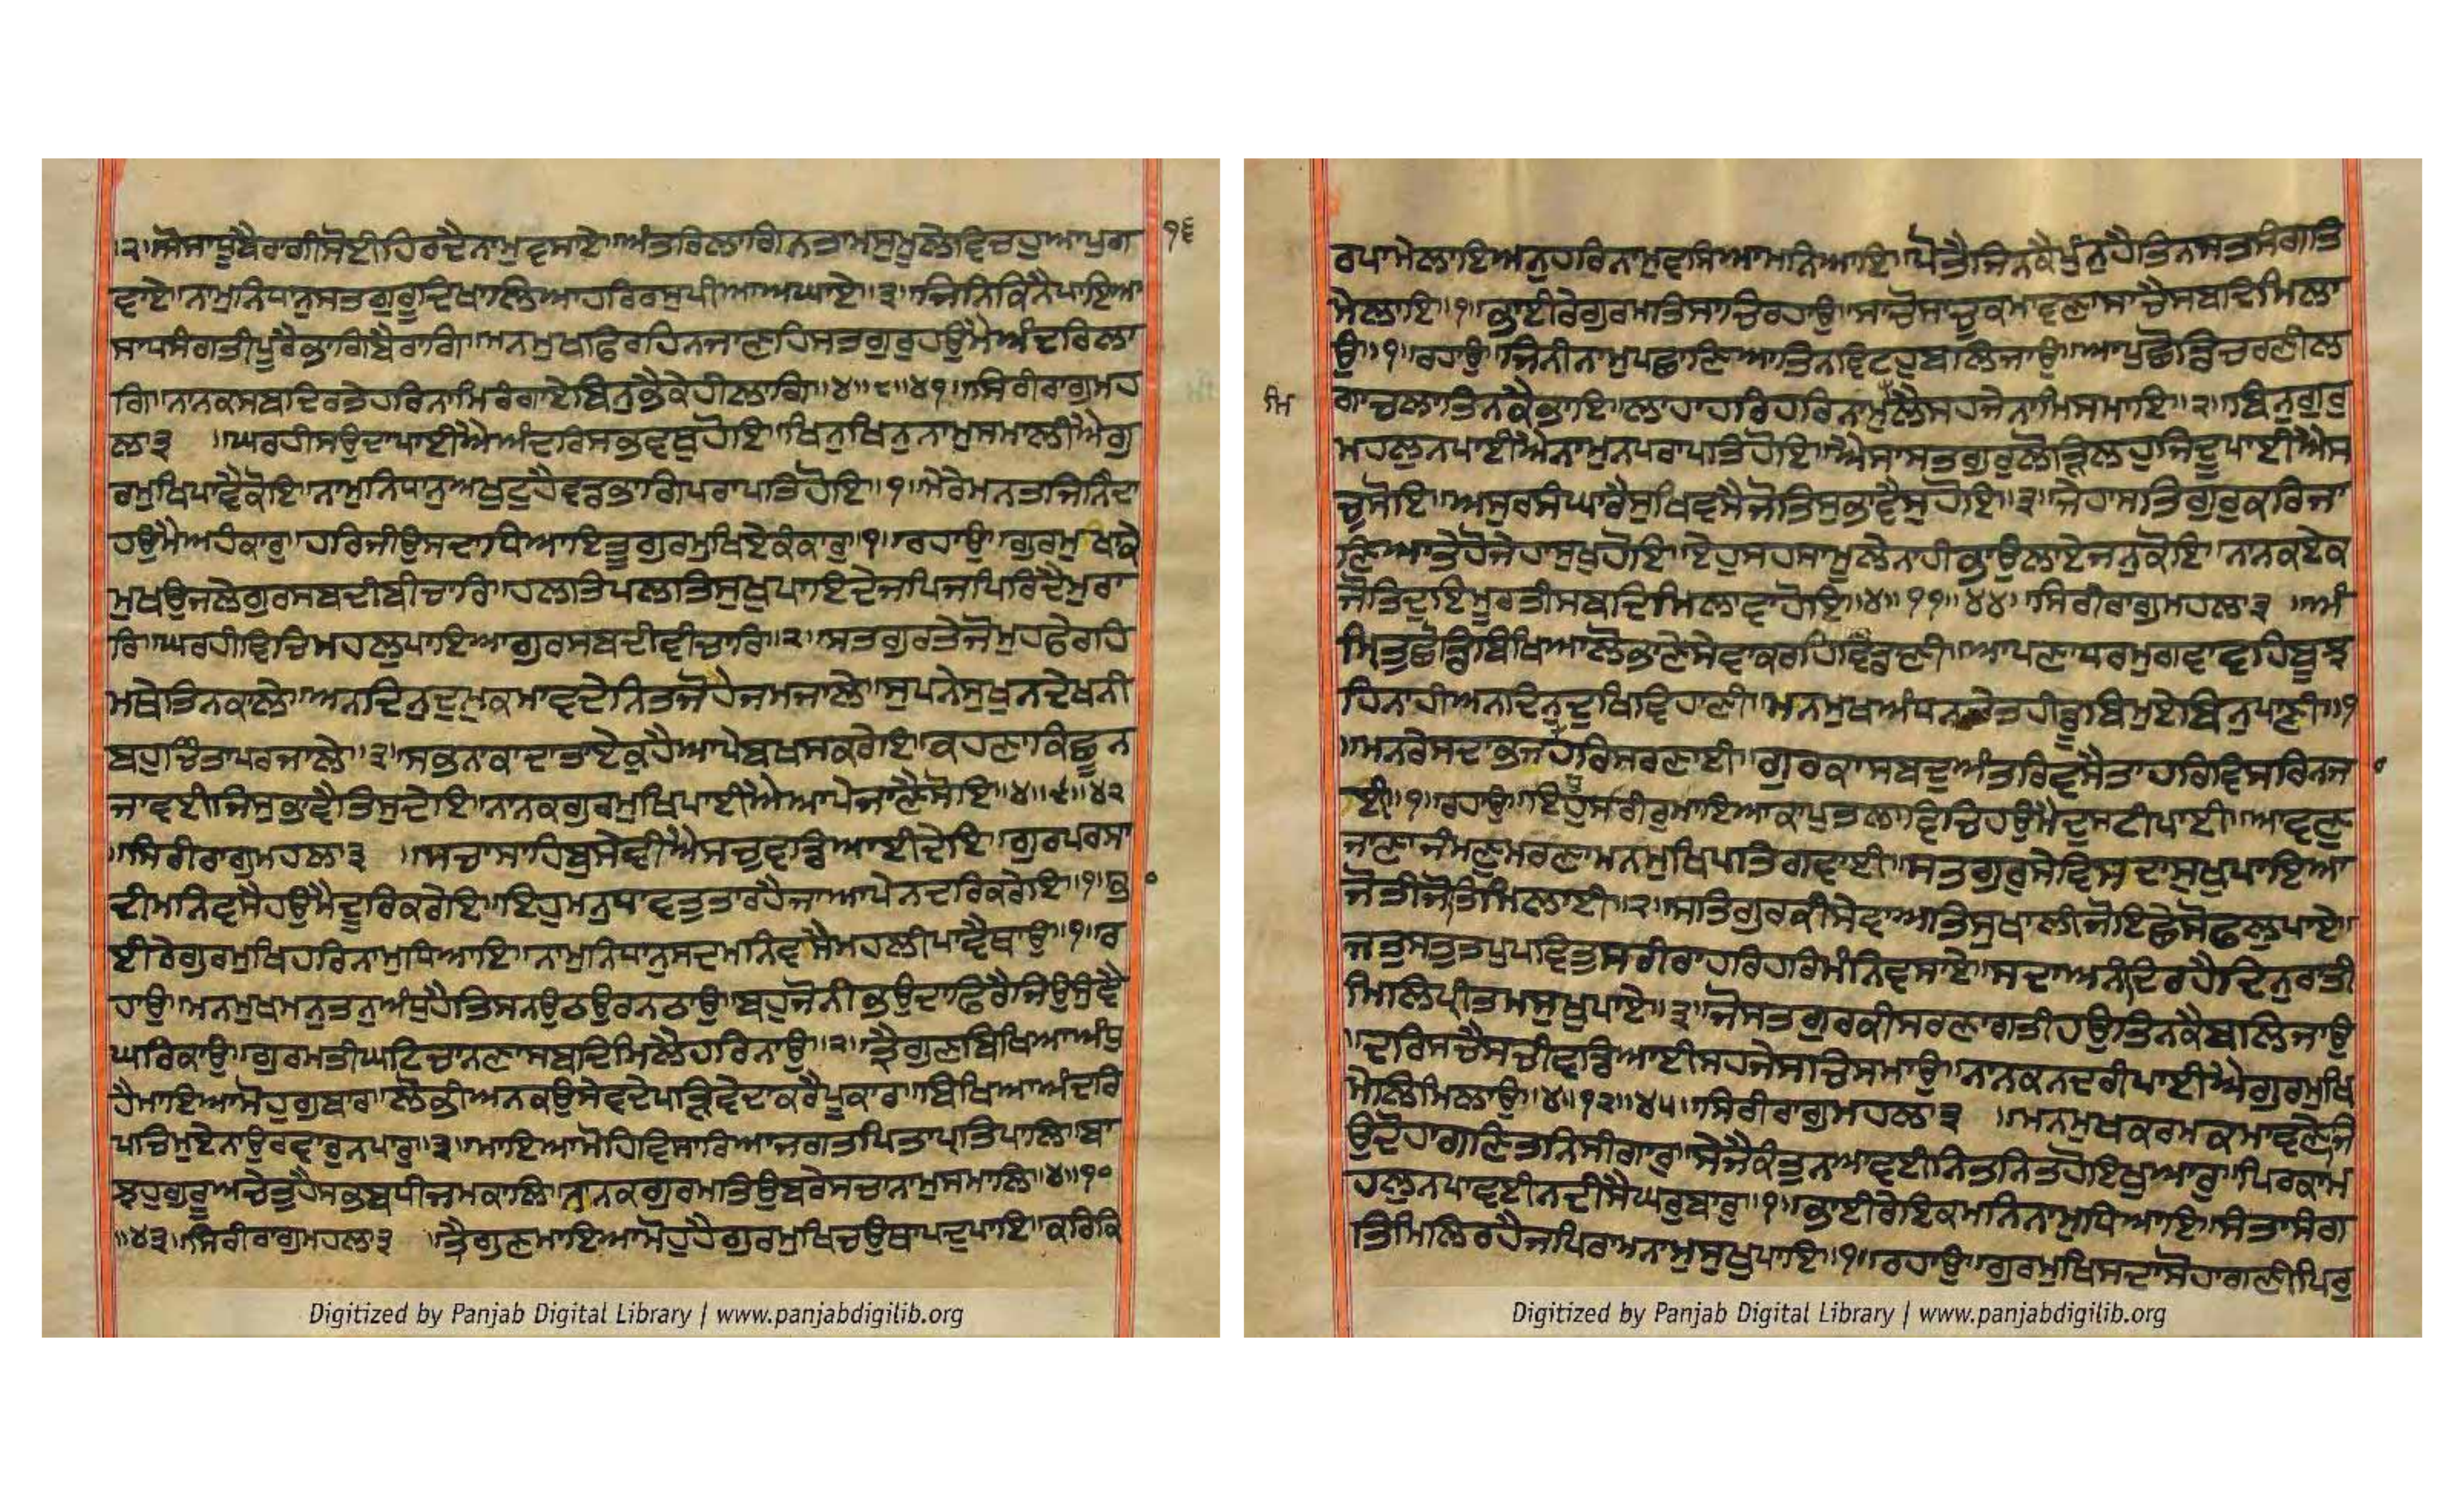 ।੨।ਸੋ ਸਾਧੂ ਬੈਰਾਗੀ ਸੋਈ ਹਿਰਦੈ ਨਾਮੁ ਵਸਾਏ॥ਅੰਤਰਿ ਲਾਗਿ ਨ ਤਾਮਸੁ ਮੂਲੇ ਵਿਚਹੁ ਆਪੁ ਗ
ਵਾਏ॥ਨਾਮੁ ਨਿਧਾਨੁ ਸਤਗੁਰੂ ਦਿਖਾਲਿਆ ਹਰਿ ਰਸੁ ਪੀਆ ਅਘਾਏ॥੩॥ਜਿਨਿ ਕਿਨੈ ਪਾਇਆ
ਸਾਧਸੰਗਤੀ ਪੂਰੈ ਭਾਗਿ ਬੈਰਾਗਿ॥ਮਨਮੁਖ ਫਿਰਹਿ ਨ ਜਾਣਹਿ ਸਤਗੁਰੁ ਹਉਮੈ ਅੰਦਰਿ ਲਾ
ਗਿ॥ਨਾਨਕ ਸਬਦਿ ਰਤੇ ਹਰਿ ਨਾਮਿ ਰੰਗਾਏ ਬਿਨੁ ਭੈ ਕੇਹੀ ਲਾਗਿ॥੪॥੮॥੪੧॥ਸਿਰੀਰਾਗੁ ਮਹ
ਲਾ ੩ ॥ਘਰ ਹੀ ਸਉਦਾ ਪਾਈਐ ਅੰਦਰਿ ਸਭ ਵਥੁ ਹੋਇ॥ਖਿਨੁ ਖਿਨੁ ਨਾਮੁ ਸਮਾਲੀਐ ਗੁ
ਰਮੁਖਿ ਪਾਵੈ ਕੋਇ॥ਨਾਮੁ ਨਿਧਾਨੁ ਅਖੁਟੁ ਹੈ ਵਡਭਾਗਿ ਪਰਾਪਤਿ ਹੋਇ॥੧॥ਮੇਰੇ ਮਨ ਤਜਿ ਨਿੰਦਾ
ਹਉਮੈ ਅਹੰਕਾਰੁ॥ਹਰਿ ਜੀਉ ਸਦਾ ਧਿਆਇ ਤੂ ਗੁਰਮੁਖਿ ਏਕੰਕਾਰੁ॥੧॥ਰਹਾਉ॥ਗੁਰਮੁਖਾ ਕੇ
ਮੁਖ ਉਜਲੇ ਗੁਰ ਸਬਦੀ ਬੀਚਾਰਿ॥ਹਲਤਿ ਪਲਤਿ ਸੁਖੁ ਪਾਇਦੇ ਜਪਿ ਜਪਿ ਰਿਦੈ ਮੁਰਾ
ਰਿ॥ਘਰ ਹੀ ਵਿਚਿ ਮਹਲੁ ਪਾਇਆ ਗੁਰ ਸਬਦੀ ਵੀਚਾਰਿ॥੨॥ਸਤਗੁਰ ਤੇ ਜੋ ਮੁਹ ਫੇਰਹਿ
ਮਥੇ ਤਿਨ ਕਾਲੇ॥ਅਨਦਿਨੁ ਦੁਖ ਕਮਾਵਦੇ ਨਿਤ ਜੋਹੈ ਜਮ ਜਾਲੇ॥ਸੁਪਨੇ ਸੁਖੁ ਨ ਦੇਖਨੀ
ਬਹੁ ਚਿੰਤਾ ਪਰਜਾਲੇ॥੩॥ਸਭਨਾ ਕਾ ਦਾਤਾ ਏਕੁ ਹੈ ਆਪੇ ਬਖਸ ਕਰੇਇ॥ਕਹਣਾ ਕਿਛੂ ਨ
ਜਾਵਈ ਜਿਸੁ ਭਾਵੈ ਤਿਸੁ ਦੇਇ॥ਨਾਨਕ ਗੁਰਮੁਖਿ ਪਾਈਐ ਆਪੇ ਜਾਣੈ ਸੋਇ॥੪॥੯॥੪੨
॥ਸਿਰੀਰਾਗੁ ਮਹਲਾ ੩ ॥ਸਚਾ ਸਾਹਿਬੁ ਸੇਵੀਐ ਸਚੁ ਵਡਿਆਈ ਦੇਇ॥ਗੁਰ ਪਰਸਾ
ਦੀ ਮਨਿ ਵਸੈ ਹਉਮੈ ਦੂਰਿ ਕਰੇਇ॥ਇਹੁ ਮਨੁ ਧਾਵਤੁ ਤਾ ਰਹੈ ਜਾ ਆਪੇ ਨਦਰਿ ਕਰੇਇ॥੧॥ਭਾ
ਈ ਰੇ ਗੁਰਮੁਖਿ ਹਰਿ ਨਾਮੁ ਧਿਆਇ॥ਨਾਮੁ ਨਿਧਾਨੁ ਸਦ ਮਨਿ ਵਸੈ ਮਹਲੀ ਪਾਵੈ ਥਾਉ॥੧॥ਰ
ਹਾਉ॥ਮਨਮੁਖ ਮਨੁ ਤਨੁ ਅੰਧੁ ਹੈ ਤਿਸ ਨਉ ਠਉਰ ਨ ਠਾਉ॥ਬਹੁ ਜੋਨੀ ਭਉਦਾ ਫਿਰੈ ਜਿਉ ਸੁੰਞੈ
ਘਰਿ ਕਾਉ॥ਗੁਰਮਤੀ ਘਟਿ ਚਾਨਣਾ ਸਬਦਿ ਮਿਲੈ ਹਰਿ ਨਾਉ॥੨॥ਤ੍ਰੈ ਗੁਣ ਬਿਖਿਆ ਅੰਧੁ
ਹੈ ਮਾਇਆ ਮੋਹ ਗੁਬਾਰ॥ਲੋਭੀ ਅਨ ਕਉ ਸੇਵਦੇ ਪੜਿ ਵੇਦਾ ਕਰੈ ਪੂਕਾਰ॥ਬਿਖਿਆ ਅੰਦਰਿ
ਪਚਿ ਮੁਏ ਨਾ ਉਰਵਾਰੁ ਨ ਪਾਰੁ॥੩॥ਮਾਇਆ ਮੋਹਿ ਵਿਸਾਰਿਆ ਜਗਤ ਪਿਤਾ ਪ੍ਰਤਿਪਾਲਿ॥ਬਾ
ਝਹੁ ਗੁਰੂ ਅਚੇਤੁ ਹੈ ਸਭ ਬਧੀ ਜਮਕਾਲਿ॥ਨਾਨਕ ਗੁਰਮਤਿ ਉਬਰੇ ਸਚਾ ਨਾਮੁ ਸਮਾਲਿ॥੪॥੧੦
॥੪੩॥ਸਿਰੀਰਾਗੁ ਮਹਲਾ ੩ ॥ਤ੍ਰੈ ਗੁਣ ਮਾਇਆ ਮੋਹੁ ਹੈ ਗੁਰਮੁਖਿ ਚਉਥਾ ਪਦੁ ਪਾਇ॥ਕਰਿ ਕਿ
੧੬
Digitized by Panjab Digital Library | www.panjabdigilib.org
ਰਪਾ ਮੇਲਾਇਅਨੁ ਹਰਿ ਨਾਮੁ ਵਸਿਆ ਮਨਿ ਆਇ॥ਪੋਤੈ ਜਿਨ ਕੈ ਪੁੰਨੁ ਹੈ ਤਿਨ ਸਤਸੰਗਤਿ
ਮੇਲਾਇ॥੧॥ਭਾਈ ਰੇ ਗੁਰਮਤਿ ਸਾਚਿ ਰਹਾਉ॥ਸਾਚੋ ਸਾਚੁ ਕਮਾਵਣਾ ਸਾਚੈ ਸਬਦਿ ਮਿਲਾ
ਉ॥੧॥ਰਹਾਉ॥ਜਿਨੀ ਨਾਮੁ ਪਛਾਣਿਆ ਤਿਨ ਵਿਟਹੁ ਬਲਿ ਜਾਉ॥ਆਪੁ ਛੋਡਿ ਚਰਣੀ ਲ
ਗਾ ਚਲਾ ਤਿਨ ਕੈ ਭਾਇ॥ਲਾਹਾ ਹਰਿ ਹਰਿ ਨਾਮੁ ਮਿਲੈ ਸਹਜੇ ਨਾਮਿ ਸਮਾਇ॥੨॥ਬਿਨੁ ਗੁਰ
ਮਹਲੁ ਨ ਪਾਈਐ ਨਾਮੁ ਨ ਪਰਾਪਤਿ ਹੋਇ॥ਐਸਾ ਸਤਗੁਰੁ ਲੋੜਿ ਲਹੁ ਜਿਦੂ ਪਾਈਐ ਸ
ਚੁ ਸੋਇ॥ਅਸੁਰ ਸੰਘਾਰੈ ਸੁਖਿ ਵਸੈ ਜੋ ਤਿਸੁ ਭਾਵੈ ਸੁ ਹੋਇ॥੩॥ਜੇਹਾ ਸਤਿਗੁਰੁ ਕਰਿ ਜਾ
ਣਿਆ ਤੇਹੋ ਜੇਹਾ ਸੁਖੁ ਹੋਇ॥ਏਹੁ ਸਹਸਾ ਮੂਲੇ ਨਾਹੀ ਭਾਉ ਲਾਏ ਜਨੁ ਕੋਇ॥ਨਾਨਕ ਏਕ
ਜੋਤਿ ਦੁਇ ਮੂਰਤੀ ਸਬਦਿ ਮਿਲਾਵਾ ਹੋਇ॥੪॥੧੧॥੪੪॥ਸਿਰੀਰਾਗੁ ਮਹਲਾ ੩ ॥ਅੰ
ਮ੍ਰਿਤੁ ਛੋਡਿ ਬਿਖਿਆ ਲੋਭਾਣੇ ਸੇਵਾ ਕਰਹਿ ਵਿਡਾਣੀ॥ਆਪਣਾ ਧਰਮੁ ਗਵਾਵਹਿ ਬੂਝ
ਹਿ ਨਾਹੀ ਅਨਦਿਨੁ ਦੁਖਿ ਵਿਹਾਣੀ॥ਮਨਮੁਖ ਅੰਧ ਨ ਚੇਤਹੀ ਡੂਬਿ ਮੁਏ ਬਿਨੁ ਪਾਣੀ॥੧
॥ਮਨ ਰੇ ਸਦਾ ਭਜਹੁ ਹਰਿ ਸਰਣਾਈ॥ਗੁਰ ਕਾ ਸਬਦੁ ਅੰਤਰਿ ਵਸੈ ਤਾ ਹਰਿ ਵਿਸਰਿ ਨ ਜਾ
ਈ॥੧॥ਰਹਾਉ॥ਇਹੁ ਸਰੀਰੁ ਮਾਇਆ ਕਾ ਪੁਤਲਾ ਵਿਚਿ ਹਉਮੈ ਦੁਸਟੀ ਪਾਈ॥ਆਵਣੁ
ਜਾਣਾ ਜੰਮਣੁ ਮਰਣਾ ਮਨਮੁਖਿ ਪਤਿ ਗਵਾਈ॥ਸਤਗੁਰੁ ਸੇਵਿ ਸਦਾ ਸੁਖੁ ਪਾਇਆ
ਜੋਤੀ ਜੋਤਿ ਮਿਲਾਈ॥੨॥ਸਤਿਗੁਰ ਕੀ ਸੇਵਾ ਅਤਿ ਸੁਖਾਲੀ ਜੋ ਇਛੇ ਸੋ ਫਲੁ ਪਾਏ॥
ਜਤੁ ਸਤੁ ਤਪੁ ਪਵਿਤੁ ਸਰੀਰਾ ਹਰਿ ਹਰਿ ਮੰਨਿ ਵਸਾਏ॥ਸਦਾ ਅਨੰਦਿ ਰਹੈ ਦਿਨੁ ਰਾਤੀ
ਮਿਲਿ ਪ੍ਰੀਤਮ ਸੁਖੁ ਪਾਏ॥੩॥ਜੋ ਸਤਗੁਰ ਕੀ ਸਰਣਾਗਤੀ ਹਉ ਤਿਨ ਕੈ ਬਲਿ ਜਾਉ
॥ਦਰਿ ਸਚੈ ਸਚੀ ਵਡਿਆਈ ਸਹਜੇ ਸਾਚਿ ਸਮਾਉ॥ਨਾਨਕ ਨਦਰੀ ਪਾਈਐ ਗੁਰਮੁਖਿ
ਮੇਲਿ ਮਿਲਾਉ॥੪॥੧੨॥੪੫॥ਸਿਰੀਰਾਗੁ ਮਹਲਾ ੩ ॥ਮਨਮੁਖ ਕਰਮ ਕਮਾਵਣੇ ਜਿ
ਉ ਦੋਹਾਗਣਿ ਤਨਿ ਸੀਗਾਰੁ॥ਸੇਜੈ ਕੰਤੁ ਨ ਆਵਈ ਨਿਤ ਨਿਤ ਹੋਇ ਖੁਆਰੁ॥ਪਿਰ ਕਾ ਮ
ਹਲੁ ਨ ਪਾਵਈ ਨ ਦੀਸੈ ਘਰੁ ਬਾਰੁ॥੧॥ਭਾਈ ਰੇ ਇਕ ਮਨਿ ਨਾਮੁ ਧਿਆਇ॥ਸੰਤਾ ਸੰਗ
ਤਿ ਮਿਲਿ ਰਹੈ ਜਪਿ ਰਾਮ ਨਾਮੁ ਸੁਖੁ ਪਾਇ॥੧॥ਰਹਾਉ॥ਗੁਰਮੁਖਿ ਸਦਾ ਸੋਹਾਗਣੀ ਪਿਰੁ
ਮਿ
Digitized by Panjab Digital Library | www.panjabdigilib.org